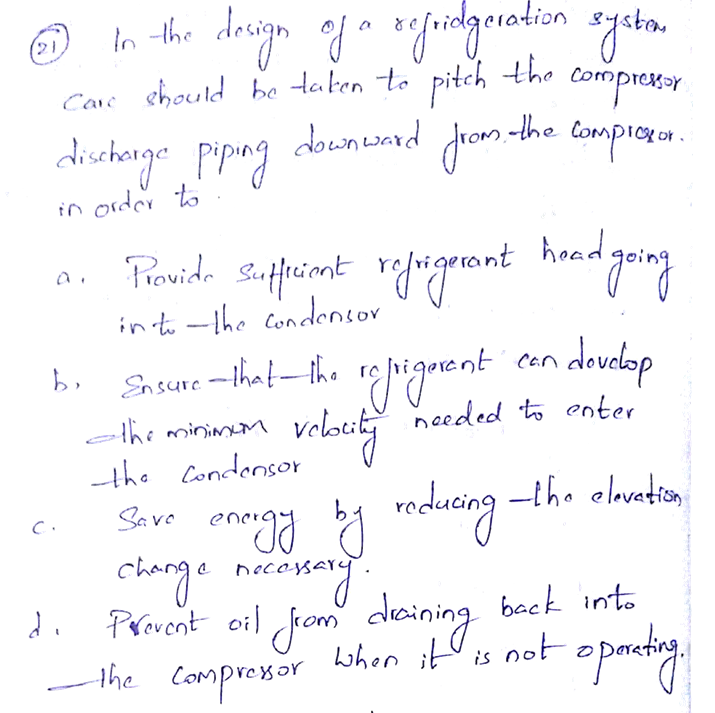 (21) In the design of a refridgeration system
care should be taken to pitch the compressor
discharge piping downward from the compressor.
in order to
a. Provide sufficient refrigerant head going
in to the condensor
b. Ensure that the refrigerant can develop
the minimum velocity needed to enter
the condensor
c. Save energy by reducing the elevation
change necessary.
d. Prevent oil from draining back into
the compressor when it is not operating.